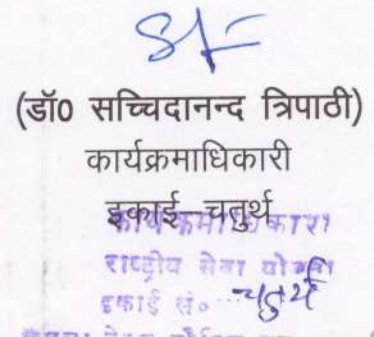 (डॉ0 सच्चिदानन्द त्रिपाठी)
कार्यक्रमाधिकारी
इकाई–चतुर्थ
कार्यक्रमाधिकारी
राष्ट्रीय सेवा योजना
इकाई सं० चतुर्थ